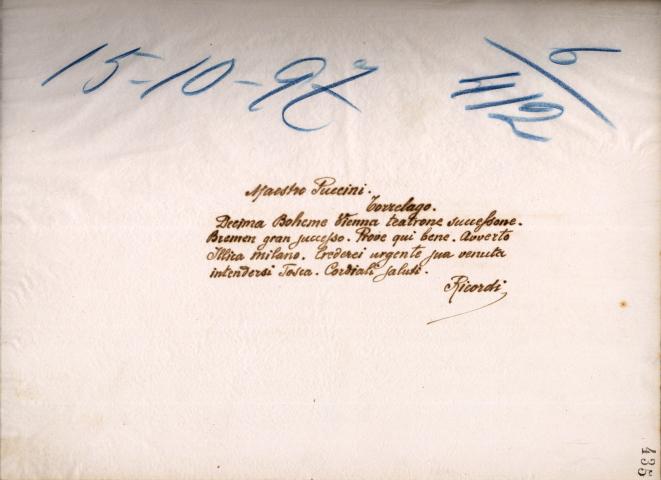 15-10-97
6/412
Maestro Puccini.
Torrelago.
Decima Boheme Vienna teatrone successone.
Bremen gran successo. Prove qui bene. Avverto
Illica Milano. Crederei urgente sua venuta
intendersi Tosca. Cordiali saluti.
Ricordi
435